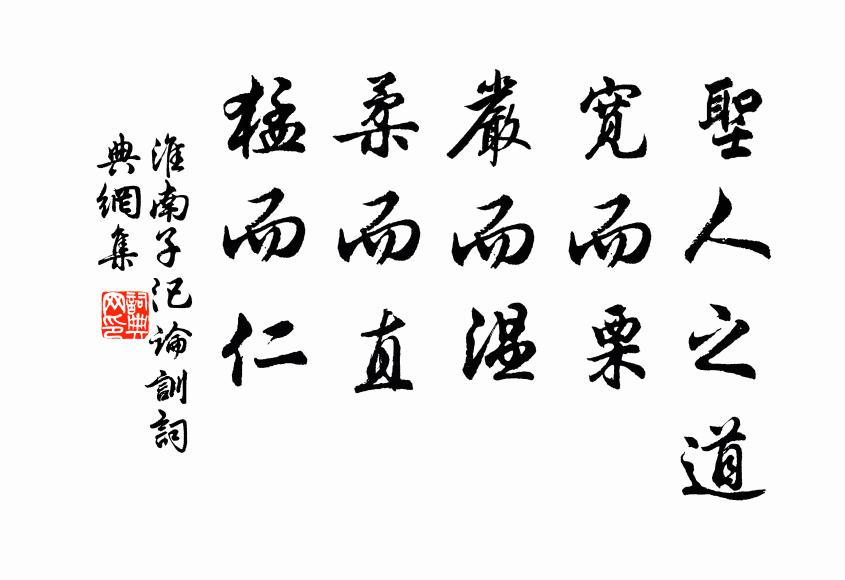 聖人之道
寬而栗
嚴而温
柔而直
猛而仁
淮南子汜論訓詞
典網集
詞典
网印